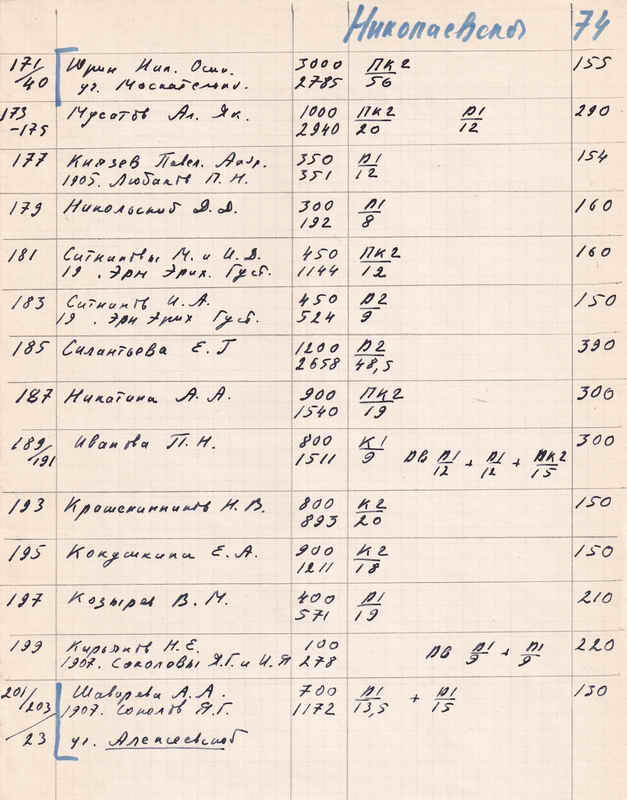 Николаевской 74
171/40 Юрин Ник. Осип. 3000 ПК2/56 155
ул. Москательн. 2785
173-175 Мусатов Ал. Як. 1000 ПК2/20 Д1/12 290
2940
177 Князев Павел Андр. 350 Д1/12 154
1905. Любаков П. Н. 351
179 Никольский Д. Д. 300 Д1/8 160
192
181 Ситниковы М. и И. Д. 450 ПК2/12 160
19 . Эрн Эрих. Густ. 1144
183 Ситников И. А. 450 Д2/9 150
19 . Эрн Эрих Густ. 524
185 Силантьева Е. Г 1200 Д2/48,5 390
2658
187 Никитина А. А. 900 ПК2/19 300
1540
189/191 Иванова П. Н. 800 К1/9 ДВ Д1/12 + Д1/12 + ПК2/15 300
1511
193 Крашенинников Н. В. 800 К2/20 150
893
195 Кокушкина Е. А. 900 К2/18 150
1211
197 Козырев В. М. 400 Д1/19 210
571
199 Кирьяков Н. Е. 100 ДВ Д1/9 + Д1/9 220
1907. Соколовы Я.Г. и И.Я 278
201/203 Шаварева А. А. 700 Д1/13,5 + Д1/15 130
1907. Соколов Я.Г. 1172
/23 ул. Алексеевской